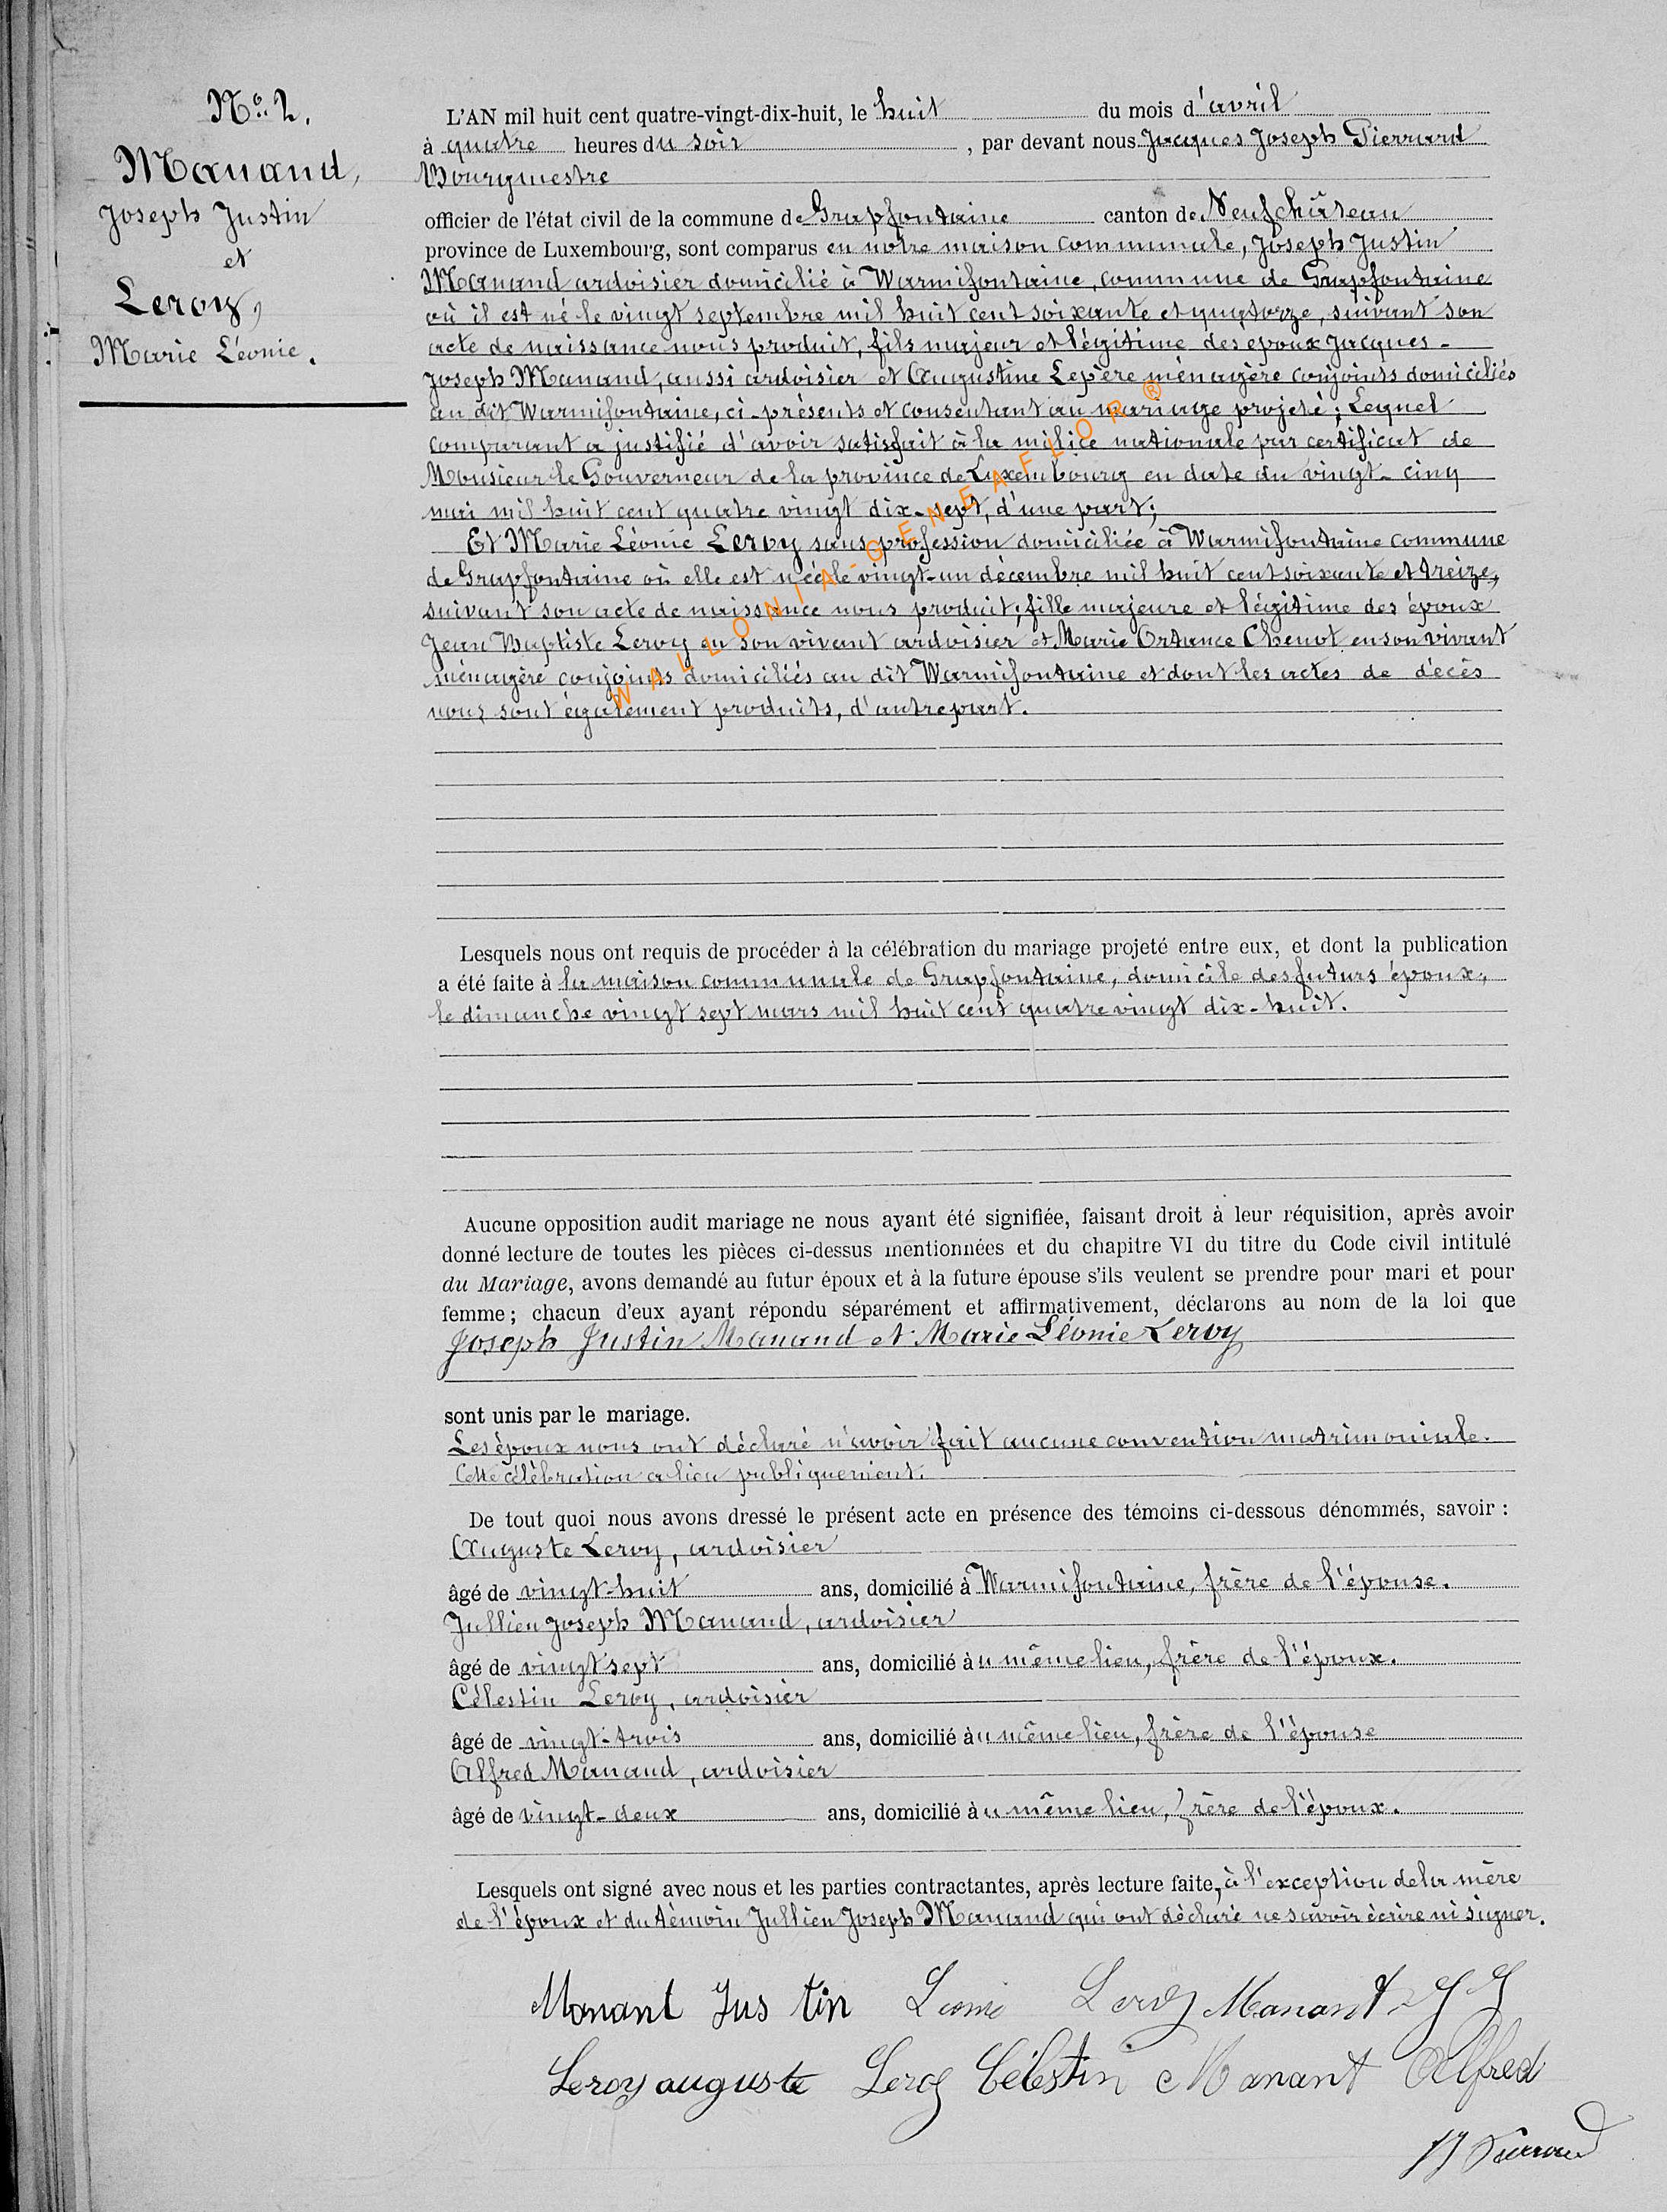 No 2.
Manand,
Joseph Justin
et
Leroy,
Marie Léonie.
L'AN mil huit cent quatre-vingt-dix-huit, le huit du mois d'avril
à quatre heures du soir, par devant nous Jacques Joseph Pierrard
Bourgmestre
officier de l'état civil de la commune de Grapfontaine canton de Neufchâteau
province de Luxembourg, sont comparus en notre maison communale, Joseph Justin
Manand ardoisier domicilié à Warmifontaine, commune de Grapfontaine
où il est né le vingt septembre mil huit cent soixante et quatorze, suivant son
acte de naissance nous produit, fils majeur et légitime des époux Jacques-
Joseph Manand, aussi ardoisier et Augustine Lepère ménagère conjoints domiciliés
au dit Warmifontaine, ci-présents et consentant au mariage projeté; Lequel
comparant a justifié d'avoir satisfait à la milice nationale par certificat de
Monsieur le Gouverneur de la province de Luxembourg en date du vingt-cinq
mai mil huit cent quatre vingt dix-sept, d'une part;
Et Marie Léonie Leroy sans profession domiciliée à Warmifontaine commune
de Grapfontaine où elle est née le vingt-un décembre mil huit cent soixante et treize,
suivant son acte de naissance nous produit; fille majeure et légitime des époux
Jean Baptiste Leroy en son vivant ardoisier et Marie Ortance Chenot en son vivant
ménagère conjoints domiciliés au dit Warmifontaine et dont les actes de décès
nous sont également produits, d'autre part.
WALLONIA-GENEAFLOR®
Lesquels nous ont requis de procéder à la célébration du mariage projeté entre eux, et dont la publication
a été faite à la maison communale de Grapfontaine, domicile des futurs époux,
le dimanche vingt sept mars mil huit cent quatre vingt dix-huit.
Aucune opposition audit mariage ne nous ayant été signifiée, faisant droit à leur réquisition, après avoir
donné lecture de toutes les pièces ci-dessus mentionnées et du chapitre VI du titre du Code civil intitulé
du Mariage, avons demandé au futur époux et à la future épouse s'ils veulent se prendre pour mari et pour
femme; chacun d'eux ayant répondu séparément et affirmativement, déclarons au nom de la loi que
Joseph Justin Manand et Marie Léonie Leroy
sont unis par le mariage.
Les époux nous ont déclaré n'avoir fait aucune convention matrimoniale.
Cette célébration a lieu publiquement.
De tout quoi nous avons dressé le présent acte en présence des témoins ci-dessous dénommés, savoir :
Auguste Leroy, ardoisier
âgé de vingt-huit ans, domicilié à Warmifontaine, frère de l'épouse.
Jullien Joseph Manand, ardoisier
âgé de vingt sept ans, domicilié au même lieu, frère de l'époux.
Célestin Leroy, ardoisier
âgé de vingt-trois ans, domicilié au même lieu, frère de l'épouse
Alfred Manand, ardoisier
âgé de vingt-deux ans, domicilié au même lieu, frère de l'époux.
Lesquels ont signé avec nous et les parties contractantes, après lecture faite, à l'exception de la mère
de l'époux et du témoin Jullien Joseph Manand qui ont déclaré ne savoir écrire ni signer.
Manant Justin Leroy Manant
Leroy auguste Leroy Célestin Manant Alfred